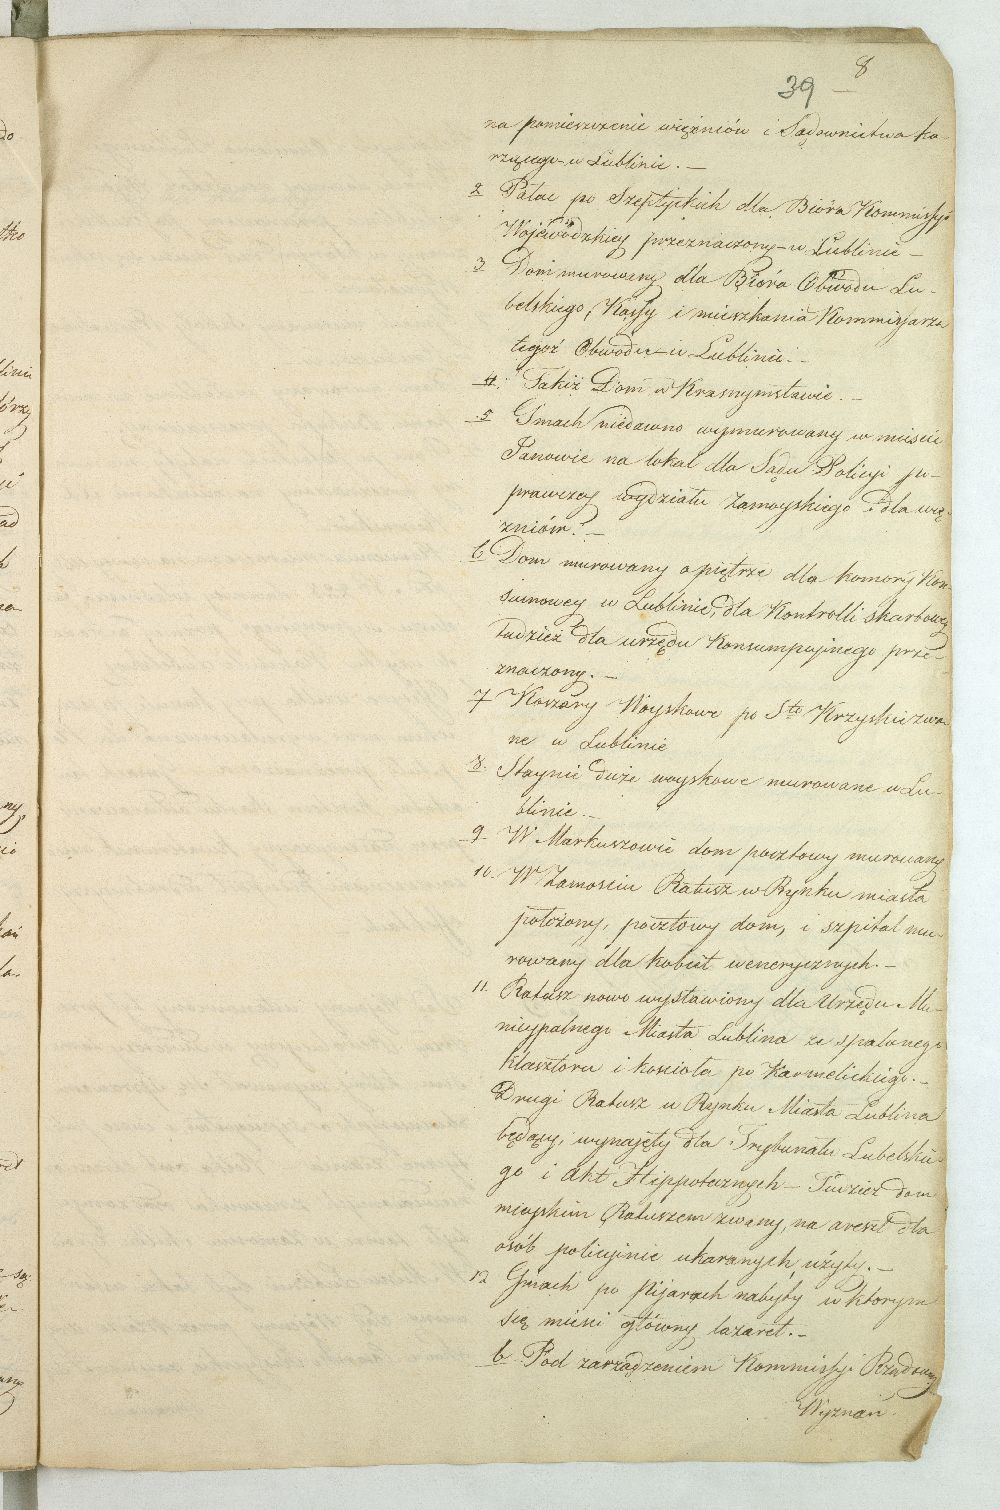 8
39
na pomieszczenie więźniów i Sądownictwa ka-
rzącego w Lublinie. —
2 Pałac po Szeptyckich dla Bióra Kommissyi
Wojewódzkiey przeznaczony w Lublinie —
3 Dom murowany dla Bióra Obwodu Lu-
belskiego, Kassy i mieszkania Kommissarza
tegoż Obwodu w Lublinie. —
4. Takiż Dom w Krasnymstawie. —
5 Gmach niedawno wymurowany w mieście
Janowie na lokal dla Sądu Policyi po-
prawczey wydziału Zamoyskiego i dla wię-
zniów. —
6 Dom murowany o piętrze dla komory Kon-
sumowey w Lublinie, dla Kontrolli skarbowey
tudzież dla urzędu Konsumpcyjnego prze-
znaczony. —
7 Koszary Woyskowe po Sto Krzyskie zwa-
ne w Lublinie
8. Staynie duże woyskowe murowane w Lu-
blinie —
9. W Markuszowie dom pocztowy murowany
10. W Zamościu Ratusz w Rynku miasta
położony, pocztowy dom, i szpital mu-
rowany dla kobiet wenerycznych. —
11. Ratusz nowo wystawiony dla Urzędu Mu-
nicypalnego Miasta Lublina ze spalonego
klasztoru i kościoła po Karmelickiego. —
Drugi Ratusz w Rynku Miasta Lublina
będący, wynajęty dla Trybunału Lubelskie-
go i Akt Hippotecznych — Tudzież dom
mieyskim Ratuszem zwany, na areszt dla
osób policyinie ukaranych użyty. —
12 Gmach po Pijarach nabyty w ktorym
się mieści główny lazaret. —
b. Pod zarządzeniem Kommissyi Rządowey
Wyznań